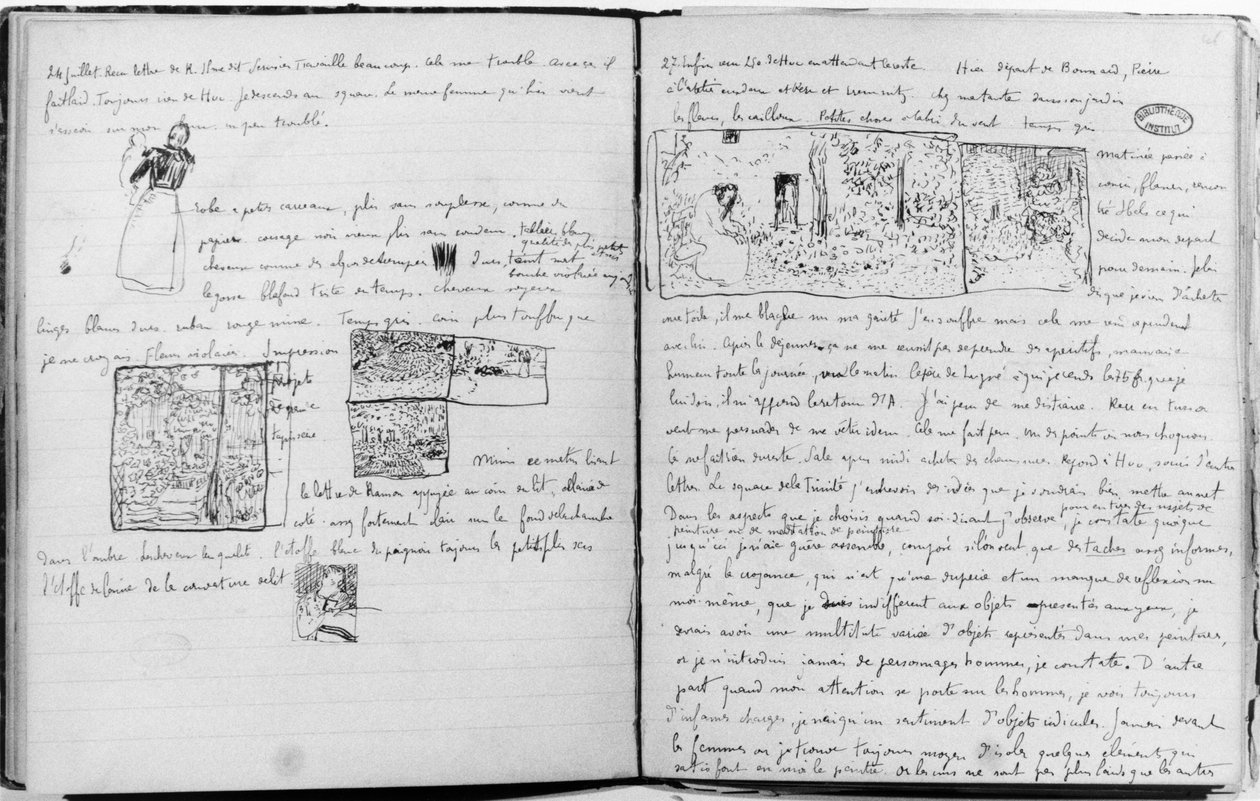 24 Juillet. Reçu lettre de K. Il me dit Serusier travaille beaucoup. Cela me trouble. Assez
faitard. Toujours rien de Huc. Je descends au square. La même femme qu'hier vient
s'asseoir sur mon banc. un peu troublé.
Robe à petits carreaux, plis sans souplesse, comme du
papier. corsage noir vieux plus sans couleur. tablier bleu
cheveux comme des algues détrempées durs, teint mat
bouche violacée
le gosse blafard triste en temps. cheveux soyeux
linges blancs durs. ruban rouge mine. Temps gris. coin plus touffu que
je ne croyais. Fleurs violacées. Impression
projets
de genre
tapisserie
Mimi lisant
la lettre de Ramon appuyée au coin du lit, éclairée de
côté. assez fortement clair sur le fond de la chambre
Dans l'ombre L'étoffe blanc du peignoir toujours les petits plis secs
l'étoffe de laine de la couverture de lit
27. Enfin reçu 250 de Huc en attendant le reste. Hier départ de Bonnard, Pierre
à l'atelier chez ma tante dans son jardin
les fleurs, les cailloux. Petites choses à l'abri du vent temps gris
BIBLIOTHÈQUE
INSTITUT
matinée passée à
courir, flaner, rencon
tré Hbels ce qui
décide mon départ
pour demain. Je lui
dis que je viens d'acheter
une toile, il me blague sur ma gaieté J'en souffre mais cela me vient cependant
avec lui. Après le déjeuner ça ne me réussit pas de prendre des apéritifs, mauvaise
humeur toute la journée, le matin. Le père de Lugné à qui je rends les 75 fr. que je
lui dois, il m'apprend le retour d'A. J'ai peur de me distraire.
veut me persuader de me vêtir idem. Cela me fait peur. un de points où nous choquons.
Ce ne fait rien du reste. Sale après midi acheter des chaussures. Répond à Huc, soucis d'autres
lettres. Le square de la Trinité j'entrevois des idées que je voudrais bien mettre au net
pour en tirer des sujets de
Dans les aspects que je choisis quand soi-disant j'observe, je constate quoique
peinture ou de méditation de peinture
jusqu'ici je n'aie guère assemblé, composé si l'on veut que des taches assez informes,
malgré la croyance, qui n'est qu'une duperie et un manque de réflexion sur
moi-même, que je suis indifférent aux objets représentés aux yeux, je
devrais avoir une multitude variée d'objets représentés dans mes peintures,
or je n'introduis jamais de personnages hommes, je constate. D'autre
part quand mon attention se porte sur les hommes, je vois toujours
d'infames charges, je n'ai qu'un sentiment d'objets ridicules. Jamais devant
les femmes où je trouve toujours moyen d'isoler quelques éléments qui
satisfont en moi le peintre. Or les uns ne sont pas plus laids que les autres